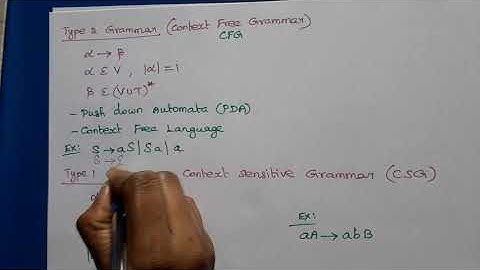 Type 2 Grammar (Context Free Grammar)
CFG
α → β
α ε V , |α| = 1
β ε (VUT)*
- Push down Automata (PDA)
- Context Free Language
Ex: S → aS | Sa | a
S → ε
Type 1 Context Sensitive Grammar (CSG)
Ex:
aA → abB